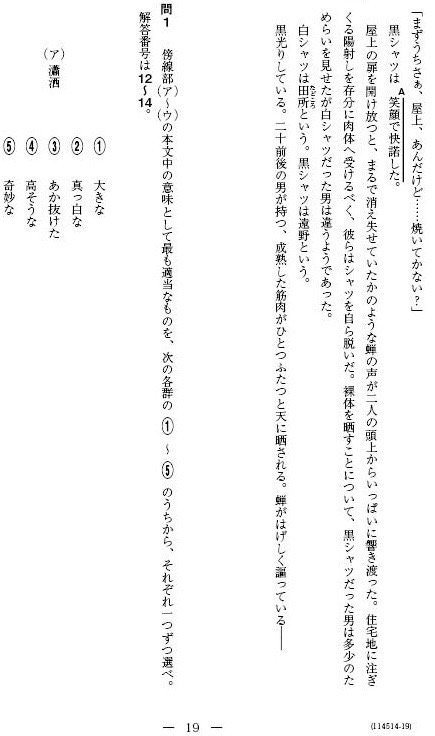 「まずうちさぁ、屋上、あんだけど……焼いてかない？」
黒シャツはA笑顔で快諾した。
屋上の扉を開け放つと、まるで消え失せていたかのような蝉の声が二人の頭上からいっぱいに響き渡った。住宅地に注ぎ
くる陽射しを存分に肉体へ受けるべく、彼らはシャツを自ら脱いだ。裸体を晒すことについて、黒シャツだった男は多少のた
めらいを見せたが白シャツだった男は違うようであった。
白シャツは田所という。黒シャツは遠野という。
黒光りしている。二十前後の男が持つ、成熟した筋肉がひとつふたつと天に晒される。蝉がはげしく謳っている――
問1 傍線部(ア)～(ウ)の本文中の意味として最も適当なものを、次の各群の①～⑤のうちから、それぞれ一つずつ選べ。
解答番号は12～14。
(ア) 瀟洒
① 大きな
② 真っ白な
③ あか抜けた
④ 高そうな
⑤ 奇妙な
― 19 ―
(114514-19)